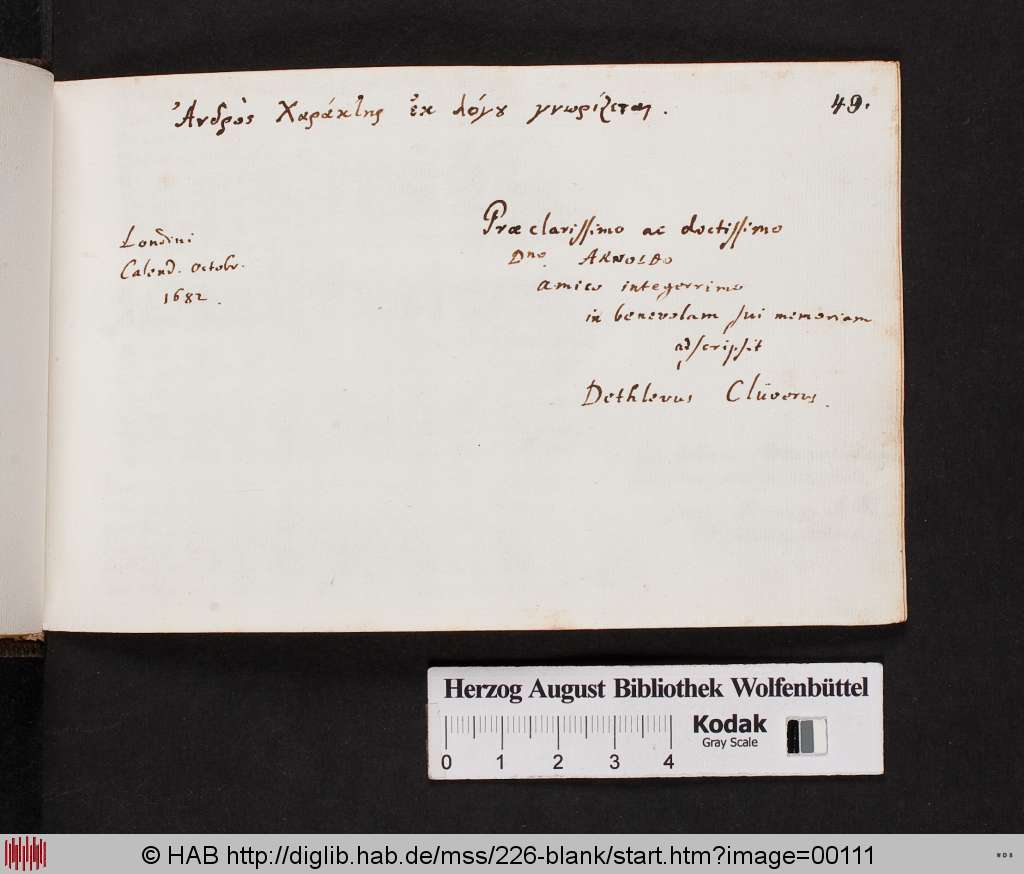 Ἀνδρὸς Χαράκτης ἐκ λόγȣ γνωρίζεται.
49.
Londini
Calend. Octobr.
1682.
Præclarissimo ac doctissimo
Dno. ARNOLDO
amico integerrimo
in benevolam sui memoriam
adscripsit
Dethlevus Clüverus.
Herzog August Bibliothek Wolfenbüttel
Kodak
Gray Scale
0 1 2 3 4
© HAB http://diglib.hab.de/mss/226-blank/start.htm?image=00111
WDB